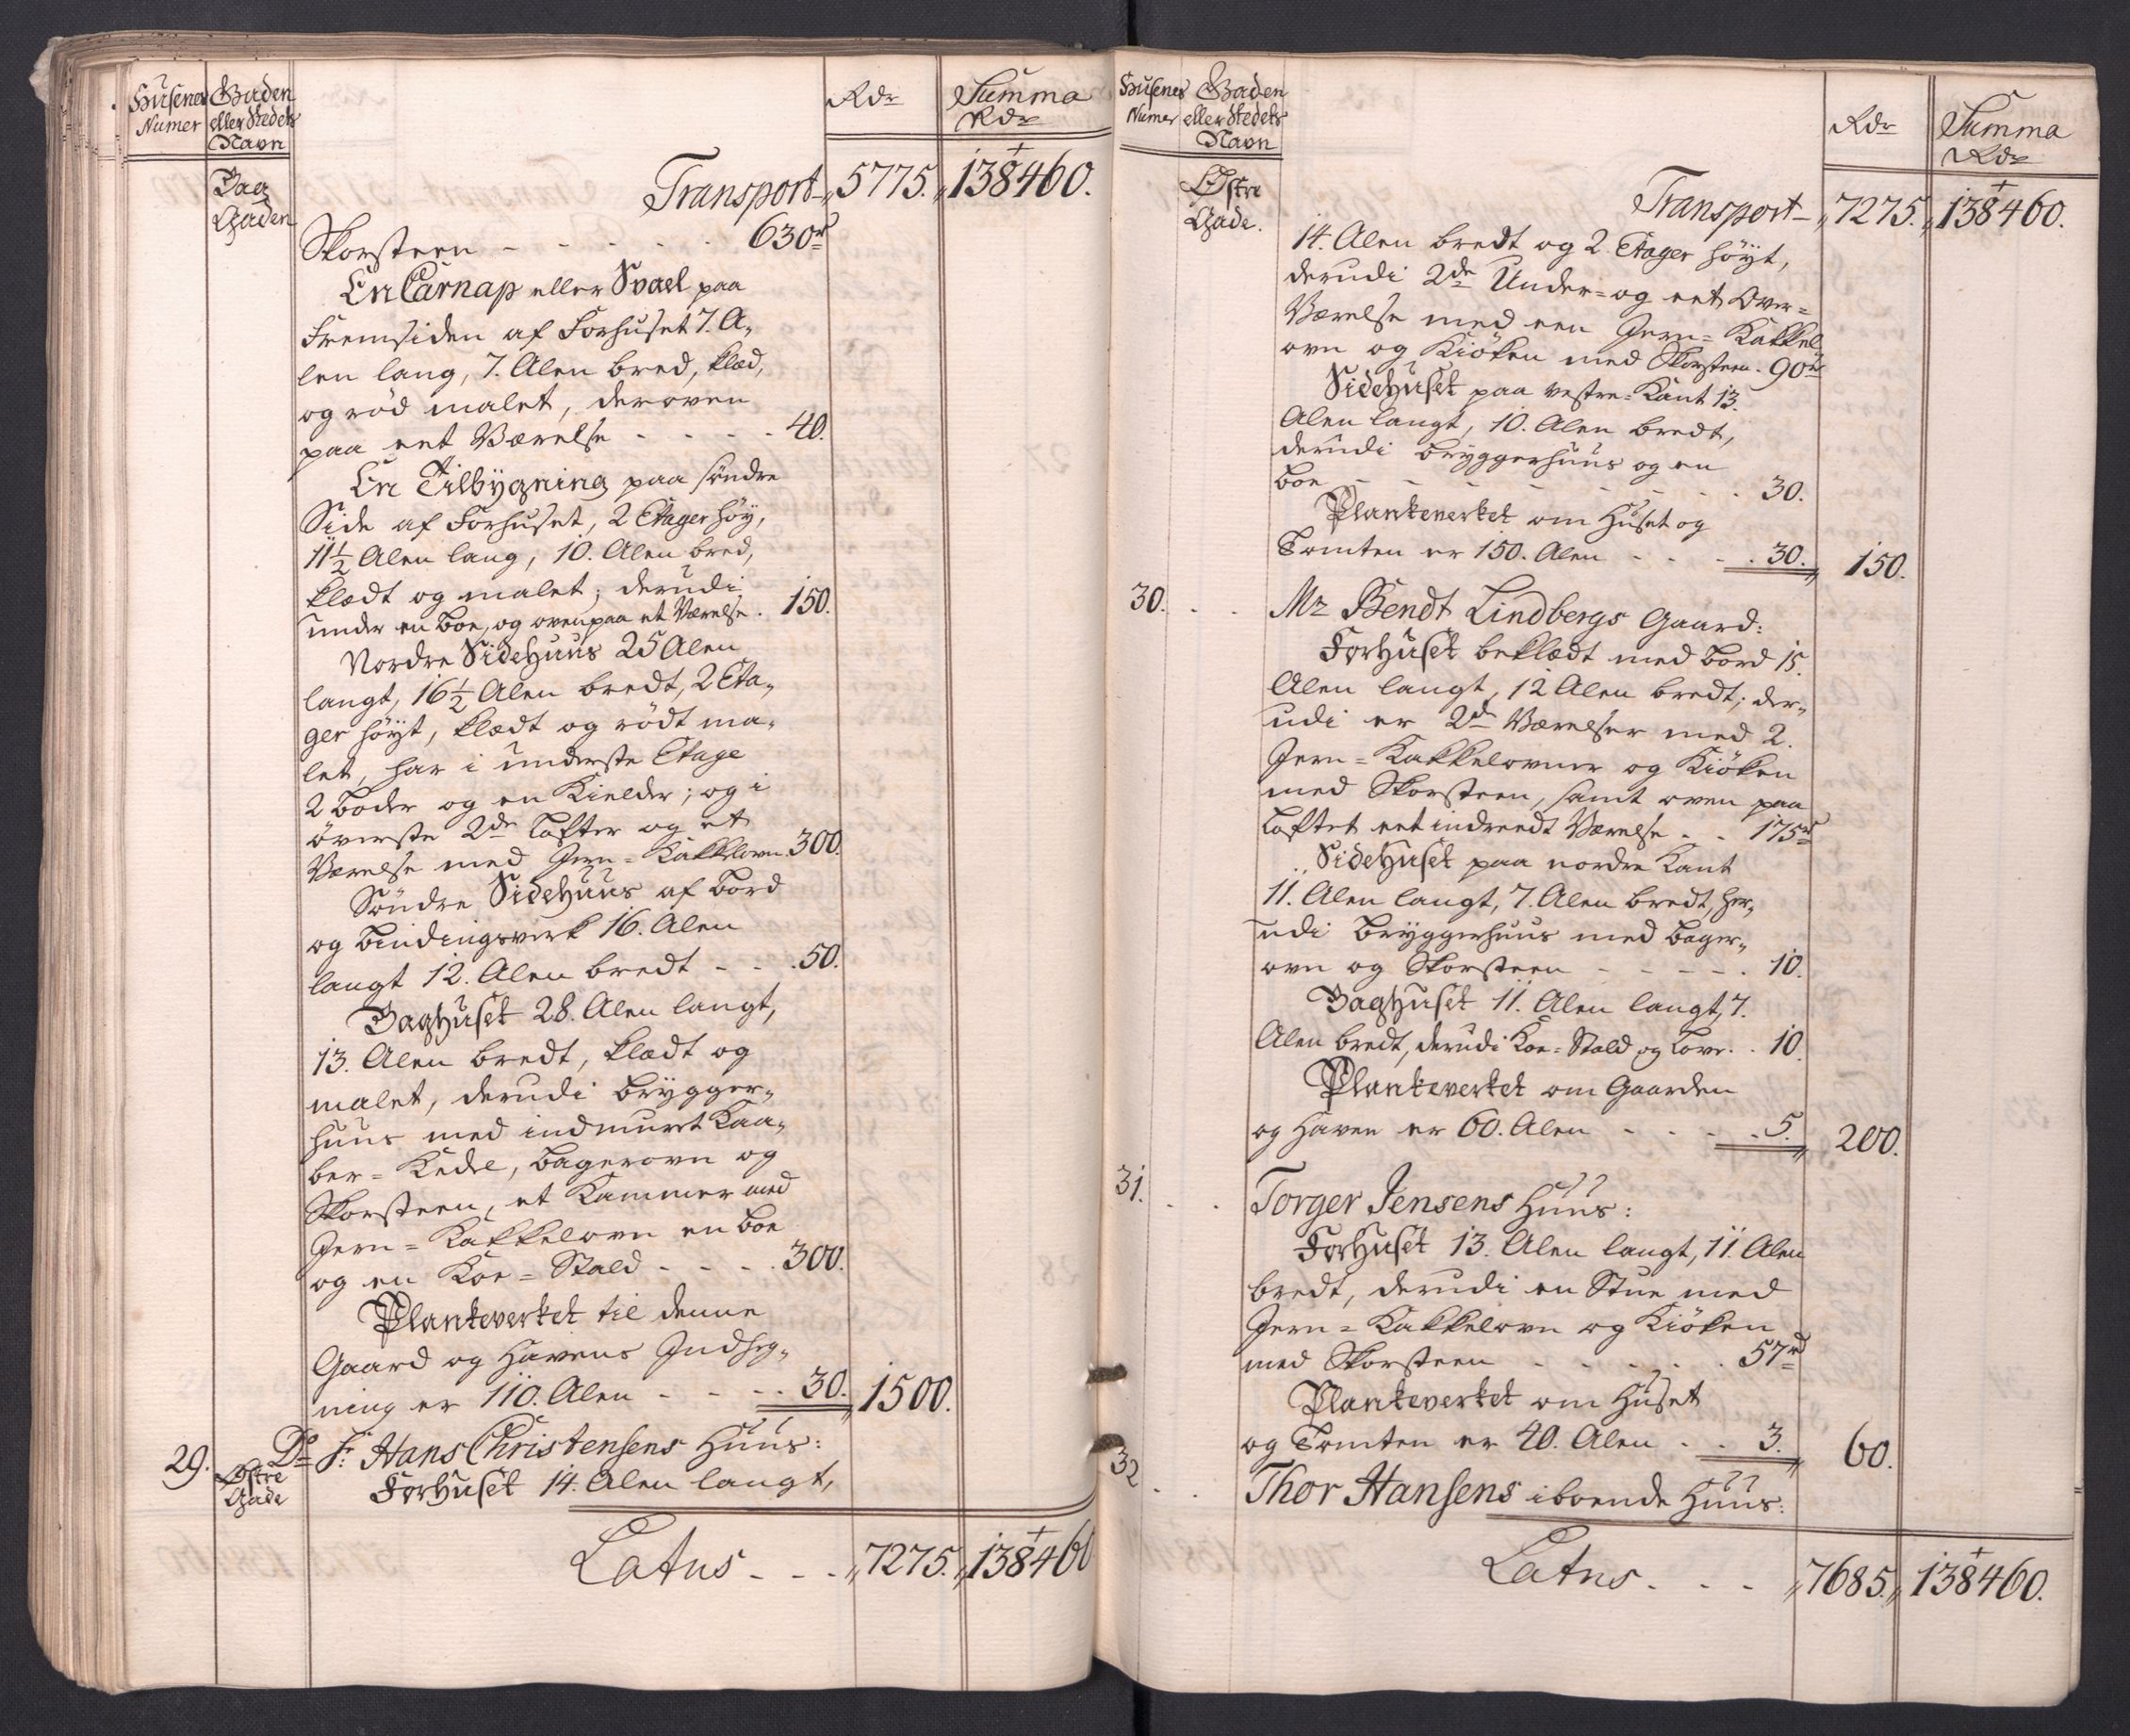 Husenes Numer
Gaden eller Stedets Navn
Rdr
Summa Rdr
Bag Gaden
Transport - „5775. „138460.
Skorsteen - - - - - 630rd
En Carnap eller Sval paa
Fremsiden af Forhuset 7. A„
len lang, 7. Alen bred, klæd,
og rød malet, deroven
paa eet Værelse - - - - 40.
En Tilbygning paa søndre
Side af Forhuset, 2 Etager høy,
11 1/2 Alen lang, 10. Alen bred,
klædt og malet; derudi
under en Boe, og ovenpaa et Værelse . 150.
Nordre SideHuus 25 Alen
langt, 16 1/2 Alen bredt, 2 Eta„
ger høyt, klædt og rødt ma„
let, har i underste Etage
2 Boder og en Kielder; og i
øverste 2de Lofter og et
Værelse med Jern=Kakkelovn. 300.
Søndre SideHuus af Bord
og Bindingsverk 16. Alen
langt 12. Alen bredt - - . 50.
BagHuset 28. Alen langt,
13. Alen bredt, klædt og
malet, derudi Brygger„
huus med indmuret Kaa„
ber=Kedel, Bagerovn og
Skorsteen, et Kammer med
Jern=Kakkelovn en Boe
og en Koe=Stald - - - . 300.
Plankeverket til denne
Gaard og Havens Indheg„
ning er 110. Alen - - - . 30. „1500.
29. Østre Gade
Do Sr. Hans Christensens Huus:
ForHuset 14. Alen langt,
Latus - - - „7275. „138460
Husenes Numer
Gaden eller Stedets Navn
Rdr
Summa Rdr
Østre Gade.
Transport - „7275. „138460.
14. Alen bredt og 2. Etager høyt,
derudi 2de Under= og eet Over=
Værelse med een Jern=Kakkel
ovn og Kiøken med Skorsteen . 90rd
SideHuset paa vestre=Kant 13.
Alen langt, 10. Alen bredt,
derudi Bryggerhuus og en
Boe - - - - - - - . 30.
Plankeverket om Huset og
Tomten er 150. Alen - - - . 30. „ 150.
30. - - Mr Bendt Lindbergs Gaard:
ForHuset beklædt med Bord 15.
Alen langt, 12 Alen bredt; der„
udi er 2de Værelser med 2.
Jern=Kakkelovner og Kiøken
med Skorsteen, samt oven paa
Loftet eet indreedt Værelse - - 175rd
SideHuset paa nordre Kant
11. Alen langt, 7. Alen bredt, her„
udi Bryggerhuus med Bager„
ovn og Skorsteen - - - - - . 10.
BagHuset 11. Alen langt, 7.
Alen bredt, derudi Koe=Stald og Love. . 10.
Plankeverket om Gaarden
og Haven er 60. Alen - - - . 5. „ 200.
31. - - Torger Jensens Huus:
ForHuset 13. Alen langt, 11. Alen
bredt, derudi en Stue med
Jern=Kakkelovn og Kiøken
med Skorsteen - - - - . 57rd
Plankeverket om Huset
og Tomten er 40. Alen . . 3. „ 60.
32 - - Thor Hansens iboende Huus:
Latus - - - „7685. „138460.